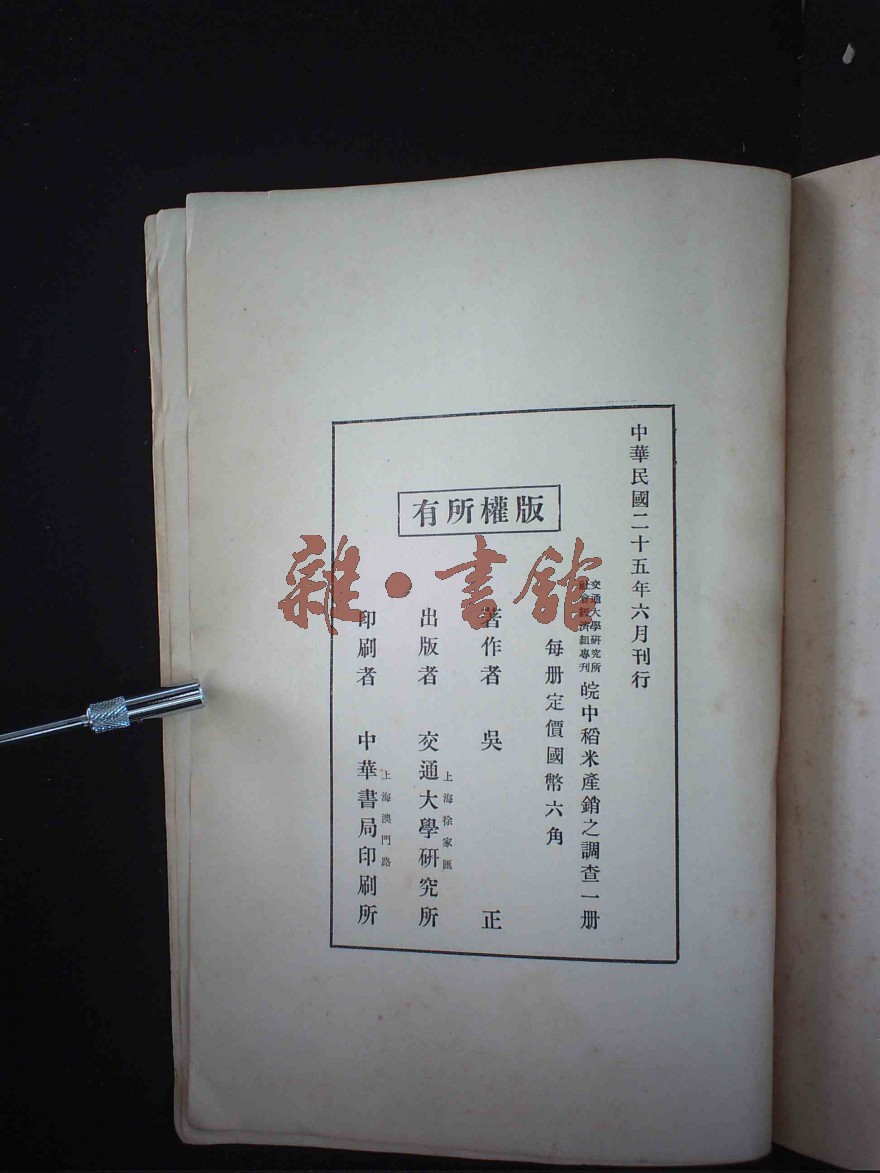 中華民國二十五年六月刊行
交通大學研究所
社會經濟組專刊
皖中稻米產銷之調查一册
每册定價國幣六角
版權所有
著作者 吳 正
上海徐家匯
出版者 交通大學研究所
上海澳門路
印刷者 中華書局印刷所
雜·書館